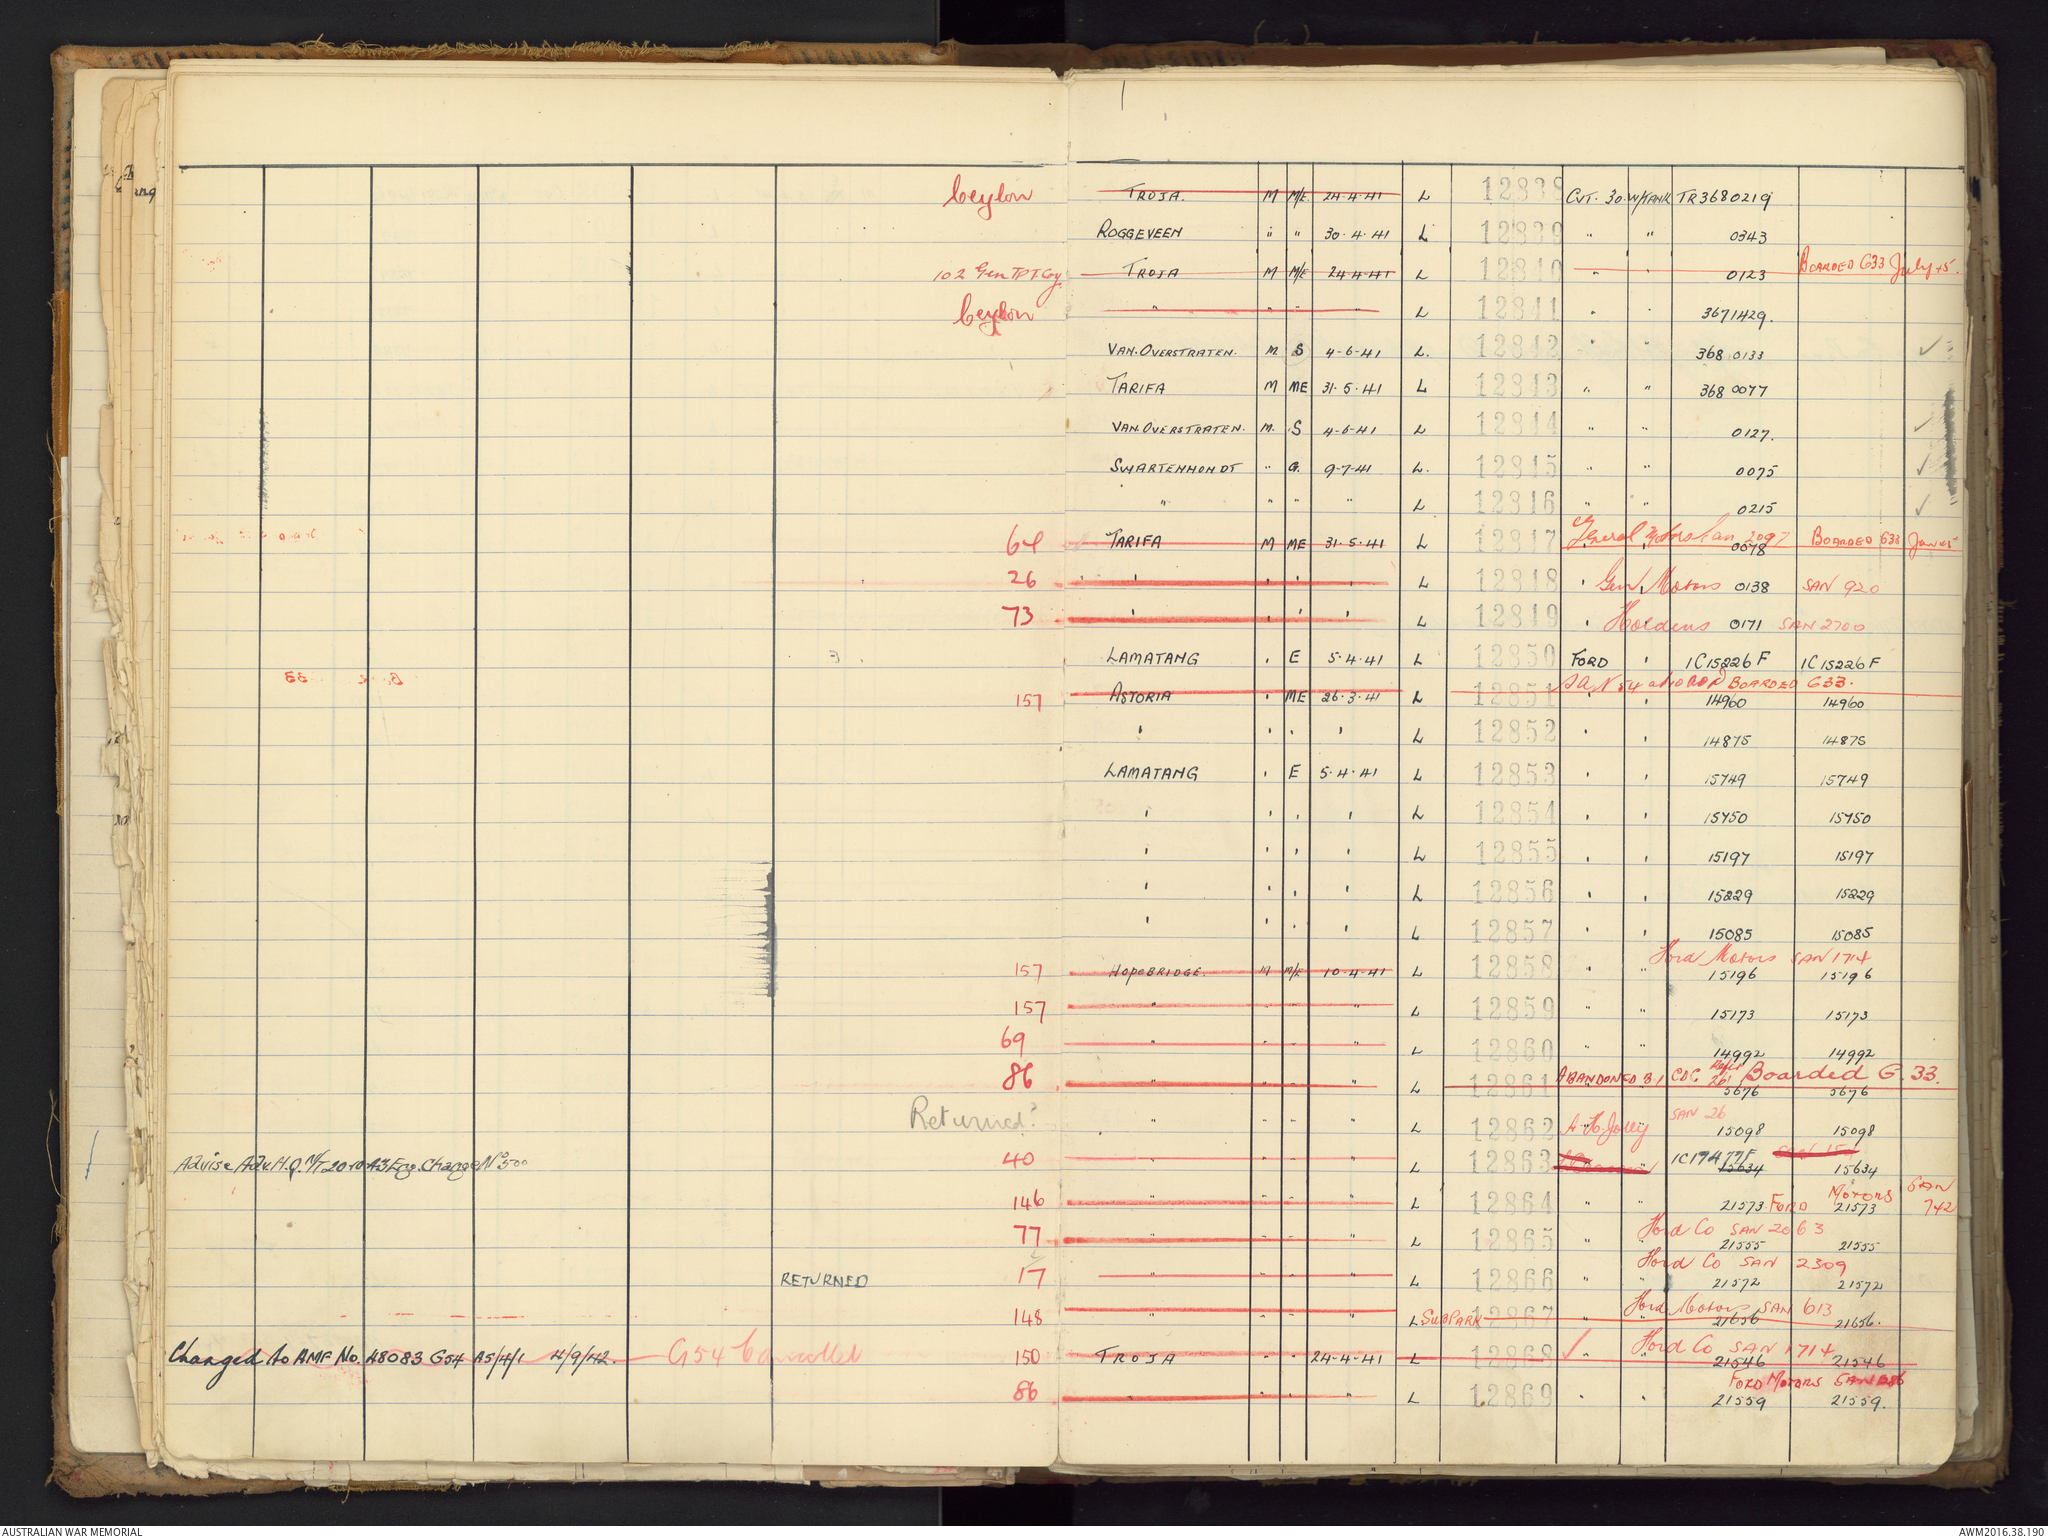 Ceylon TROJA. M M/E 24-4-41 L 12838 CVT. 30.W/TANK TR3680219
ROGGEVEEN " " 30.4.41 L 12839 " " 0343
102 Gen TPT Coy. TROJA M M/E 24-4-41 L 12840 " " 0123 BOARDED G33 July 45.
Ceylon " " " " L 12841 " " 3671429.
VAN.OVERSTRATEN. M. S 4-6-41 L. 12842 " " 368 0133 ✓
TARIFA M ME 31.5.41 L 12843 " " 368 0077
VAN.OVERSTRATEN. M. S 4-6-41 L 12844 " " 0127. ✓
SWARTENHONDT " G. 9-7-41 L. 12845 " " 0075 ✓
" " " " L 12846 " " 0215 ✓
64 TARIFA M ME 31.5.41 L 12847 General Motors San 2097 0078 BOARDED G33 Jan 45
26 " " " " L 12848 " Gen Motors 0138 SAN 920
73 " " " " L 12849 " Holdens 0171 SAN 2700
LAMATANG " E 5.4.41 L 12850 FORD " 1C15226F 1C15226F
SAN 54 BOARDED G33.
157 ASTORIA " ME 26.3.41 L 12851 " " 14960 14960
" " " " L 12852 " " 14875 14875
LAMATANG " E 5.4.41 L 12853 " " 15749 15749
" " " " L 12854 " " 15750 15750
" " " " L 12855 " " 15197 15197
" " " " L 12856 " " 15229 15229
" " " " L 12857 " " 15085 15085
Ford Motors SAN 1714
157 HOPEBRIDGE. M M/E 10-4-41 L 12858 " " 15196 15196
157 " " " " L 12859 " " 15173 15173
69 " " " " L 12860 " " 14992 14992
86 " " " " L 12861 ABANDONED BY CDC Boarded G.33. 5676 5676
Returned? " " " " L 12862 A. H. Jolly SAN 26 15098 15098
Advise Adv.H.Q. M/T 2010 A3 Eng. Change No 500 40 " " " " L 12863 " 1C17477F 15634 15634
146 " " " " L 12864 " " 21573 FORD MOTORS SAN 742 21573
77 " " " " L 12865 " " Ford Co SAN 2063 21555 21555
RETURNED 17 " " " " L 12866 " " Ford Co SAN 2309 21572 21572
148 " " " " L SUB PARK 12867 " Ford Motors SAN 613 21656 21656.
Changed to AMF No. 48083 G54 A5/4/1 4/9/42. G54 Cancelled 150 TROJA " " 24-4-41 L 12868 ✓ " Ford Co SAN 1714 21546 21546
FORD MOTORS
86 " " " " L 12869 " " 21559 21559.
AUSTRALIAN WAR MEMORIAL
AWM2016.38.190